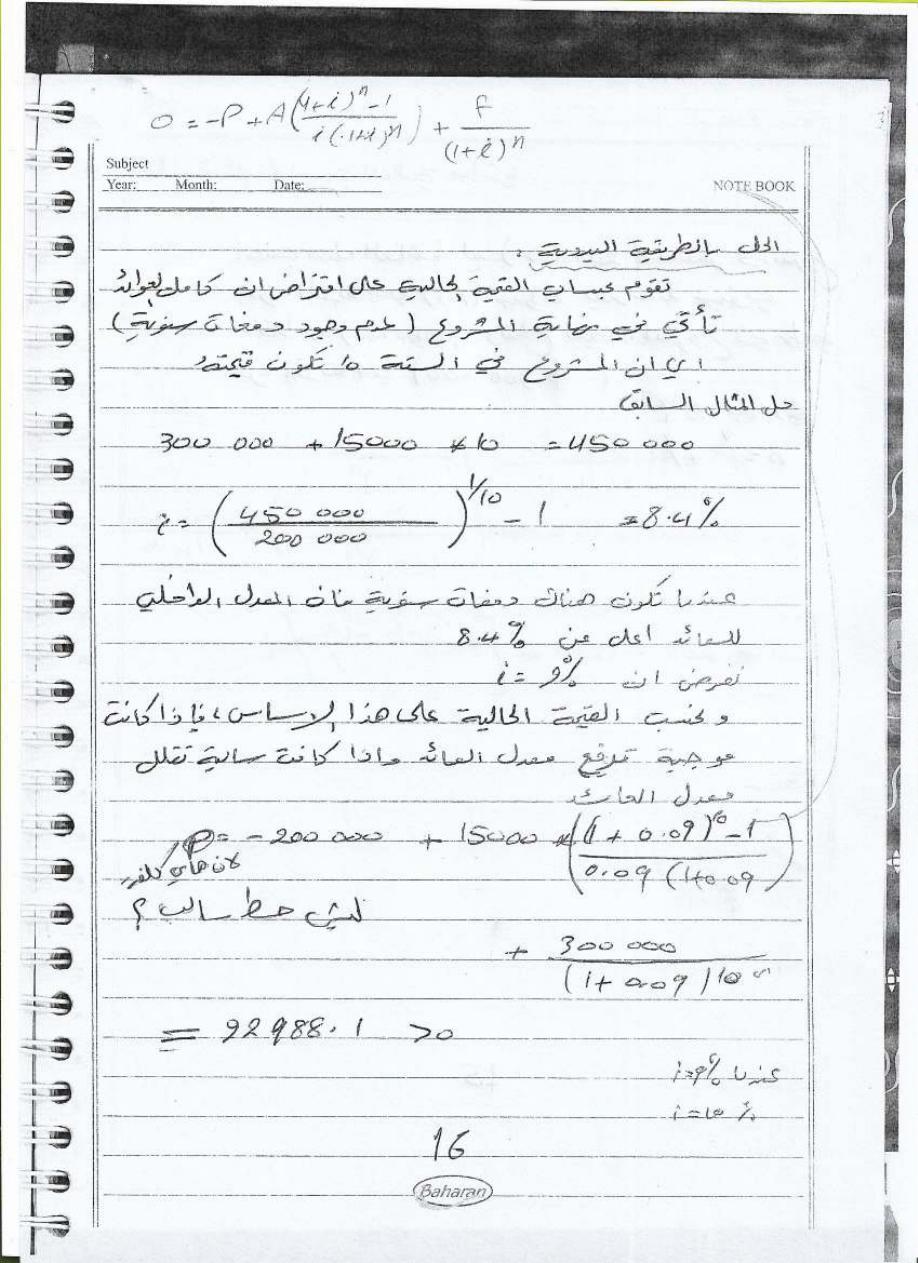 0 = -P + A((1+i)^n - 1 / i(1+i)^n) + F / (1+i)^n
Subject
Year: Month: Date:
NOTE BOOK
الحل بالطريقة اليدوية :
تقوم بحساب القيمة الحالية على افتراض ان كامل العوائد
تأتي في نهاية المشروع ( لعدم وجود دفعات سنوية )
اي ان المشروع في السنة 10 تكون قيمته
حل المثال السابق
300 000 + 15000 * 10 = 450 000
i = (450 000 / 200 000)^1/10 - 1 = 8.4%
عندما تكون هناك دفعات سنوية فان المعدل الداخلي
للعائد اعلى من 8.4%
نفرض ان i = 9%
و نحسب القيمة الحالية على هذا الاساس ، فإذا كانت
موجبة نرفع معدل العائد واذا كانت سالبة نقلل
معدل العائد
P = - 200 000 + 15000 * ((1 + 0.09)^10 - 1 / 0.09 (1+0.09)
ليش حط سالب ؟
+ 300 000 / (1 + 0.09)10
= 22988.1 >0
عندما i=9%
i=10%
16
Baharan